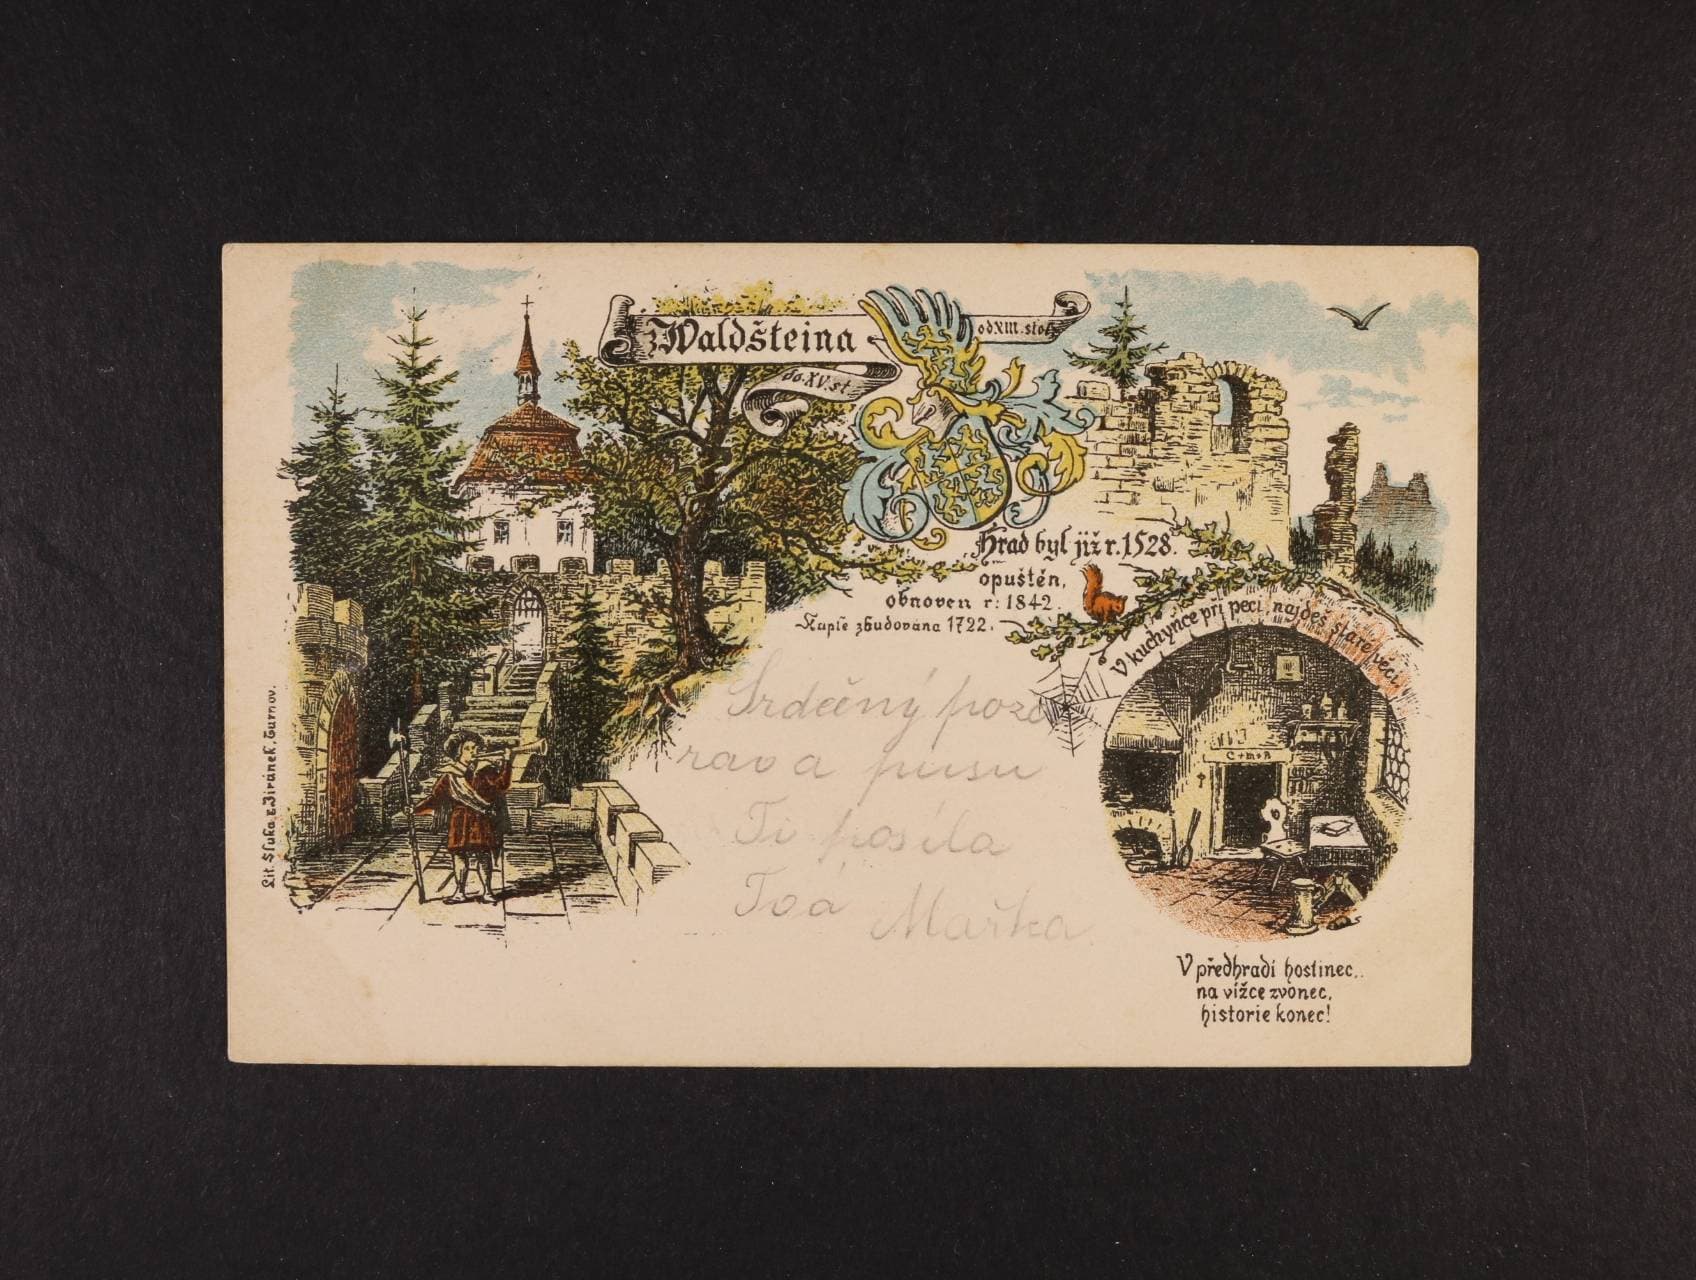 z Waldšteina
od XIII. stol.
do XV. st.
Hrad byl již r. 1528.
opuštěn,
obnoven r: 1842.
Kaple zbudována 1722.
V kuchyňce při peci, najdeš staré věci.
C+M+B
Srdečný pozd
rav a pusu
Ti posílá
Tvá Mařka.
V předhradí hostinec,..
na vížce zvonec,
historie konec!
Lit. Sluka & Jiránek, Turnov.